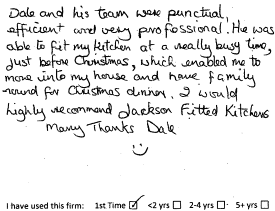 Dale and his team were punctual,
efficient and very professional. He was
able to fit my kitchen at a really busy time,
just before Christmas, which enabled me to
move into my house and have family
round for Christmas dinner. I would
highly recommend Jackson Fitted Kitchens
Many Thanks Dale
I have used this firm: 1st Time ☑ <2 yrs ☐ 2-4 yrs ☐ 5+ yrs ☐